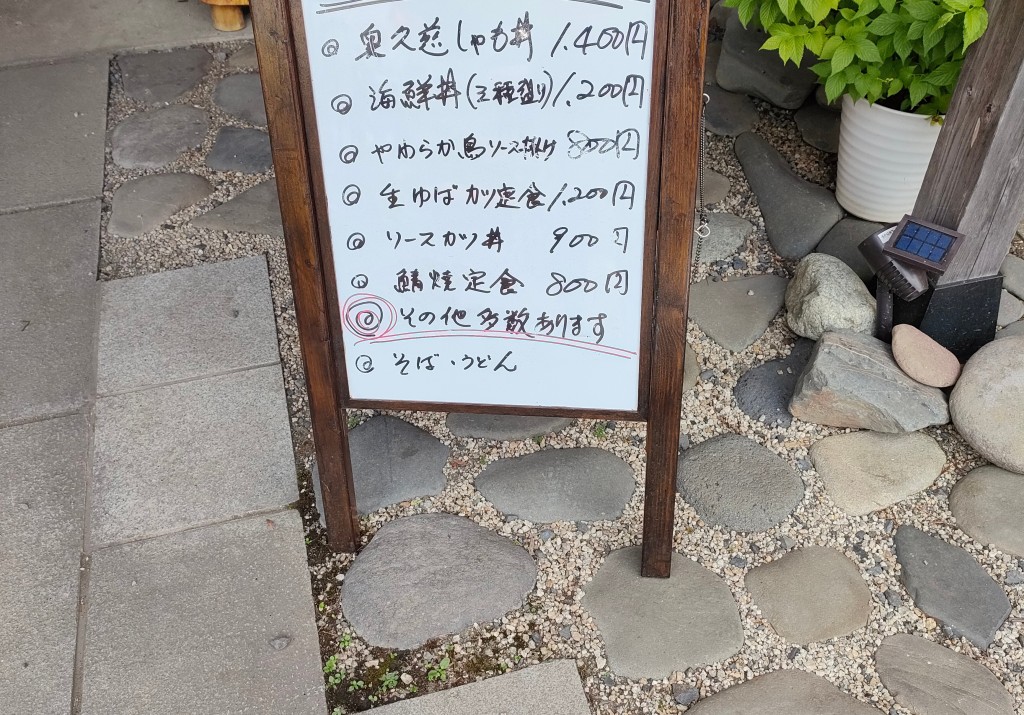 ◎ 奥久慈しゃも丼 1.400円
◎ 海鮮丼(三種盛り) 1.200円
◎ やわらか鳥ソース 800円
◎ 生ゆばカツ定食 1.200円
◎ ソースカツ丼 900円
◎ 鯖焼定食 800円
◎ その他多数あります
◎ そば・うどん